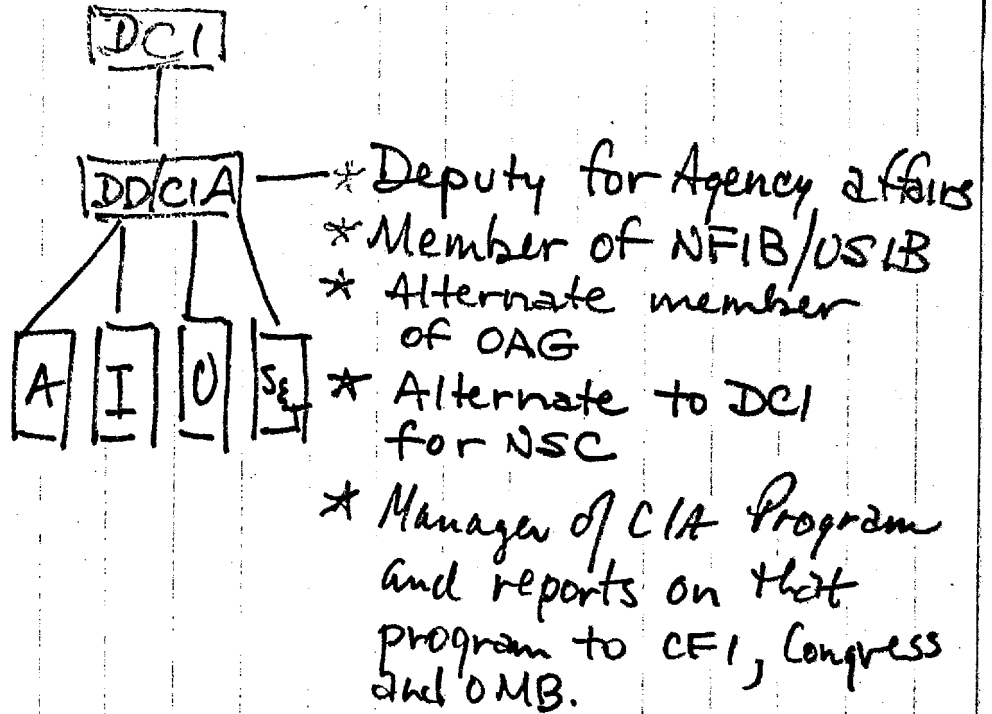 DCI
DD/CIA
* Deputy for Agency affairs
* Member of NFIB/USIB
* Alternate member
of OAG
A I O S&T
* Alternate to DCI
for NSC
* Manager of CIA Program
and reports on that
program to CFI, Congress
and OMB.